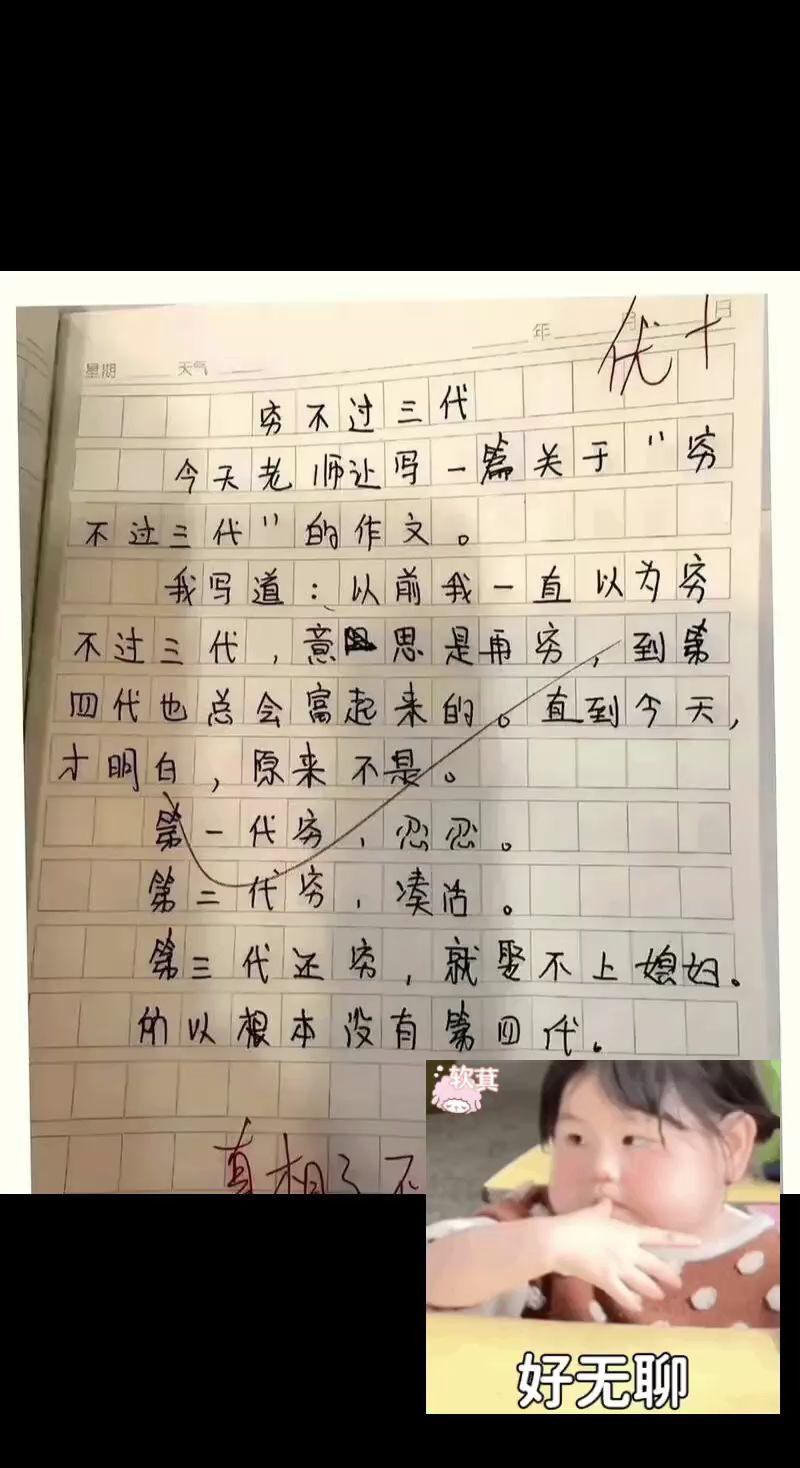 年 月 日
优+
星期 天气
穷不过三代
今天老师让写一篇关于"穷
不过三代"的作文。
我写道：以前我一直以为穷
不过三代，意思是再穷，到第
四代也总会富起来的。直到今天，
才明白，原来不是。
第一代穷，忍忍。
第二代穷，凑活。
第三代还穷，就娶不上媳妇。
所以根本没有第四代。
真相了不
软萁
好无聊